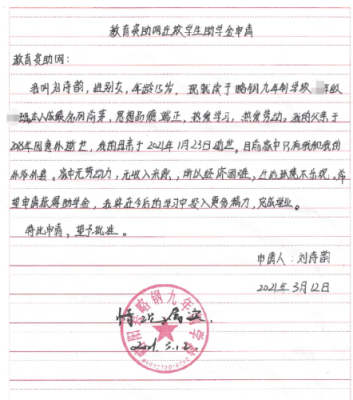 教育资助网在校学生助学金申请
教育资助网：
我叫刘诗韵，性别女，年龄15岁，现就读于略钢九年制学校 年级
班。本人 品尚，思想品德端正，热爱学习，热爱劳动。我的父亲于
因意外逝世，我的母亲于2021年1月23日逝世。目前家中只有我和我的
外公外婆。家中无劳动力，无收入来源，所以经济困难，生活环境不乐观。希
望申请获得助学金，我将在今后的学习中投入更多精力，完成学业。
特此申请，望予批准。
申请人：刘诗韵
2021年3月12日
略钢九年制学校
情况属实
2021.3.12.